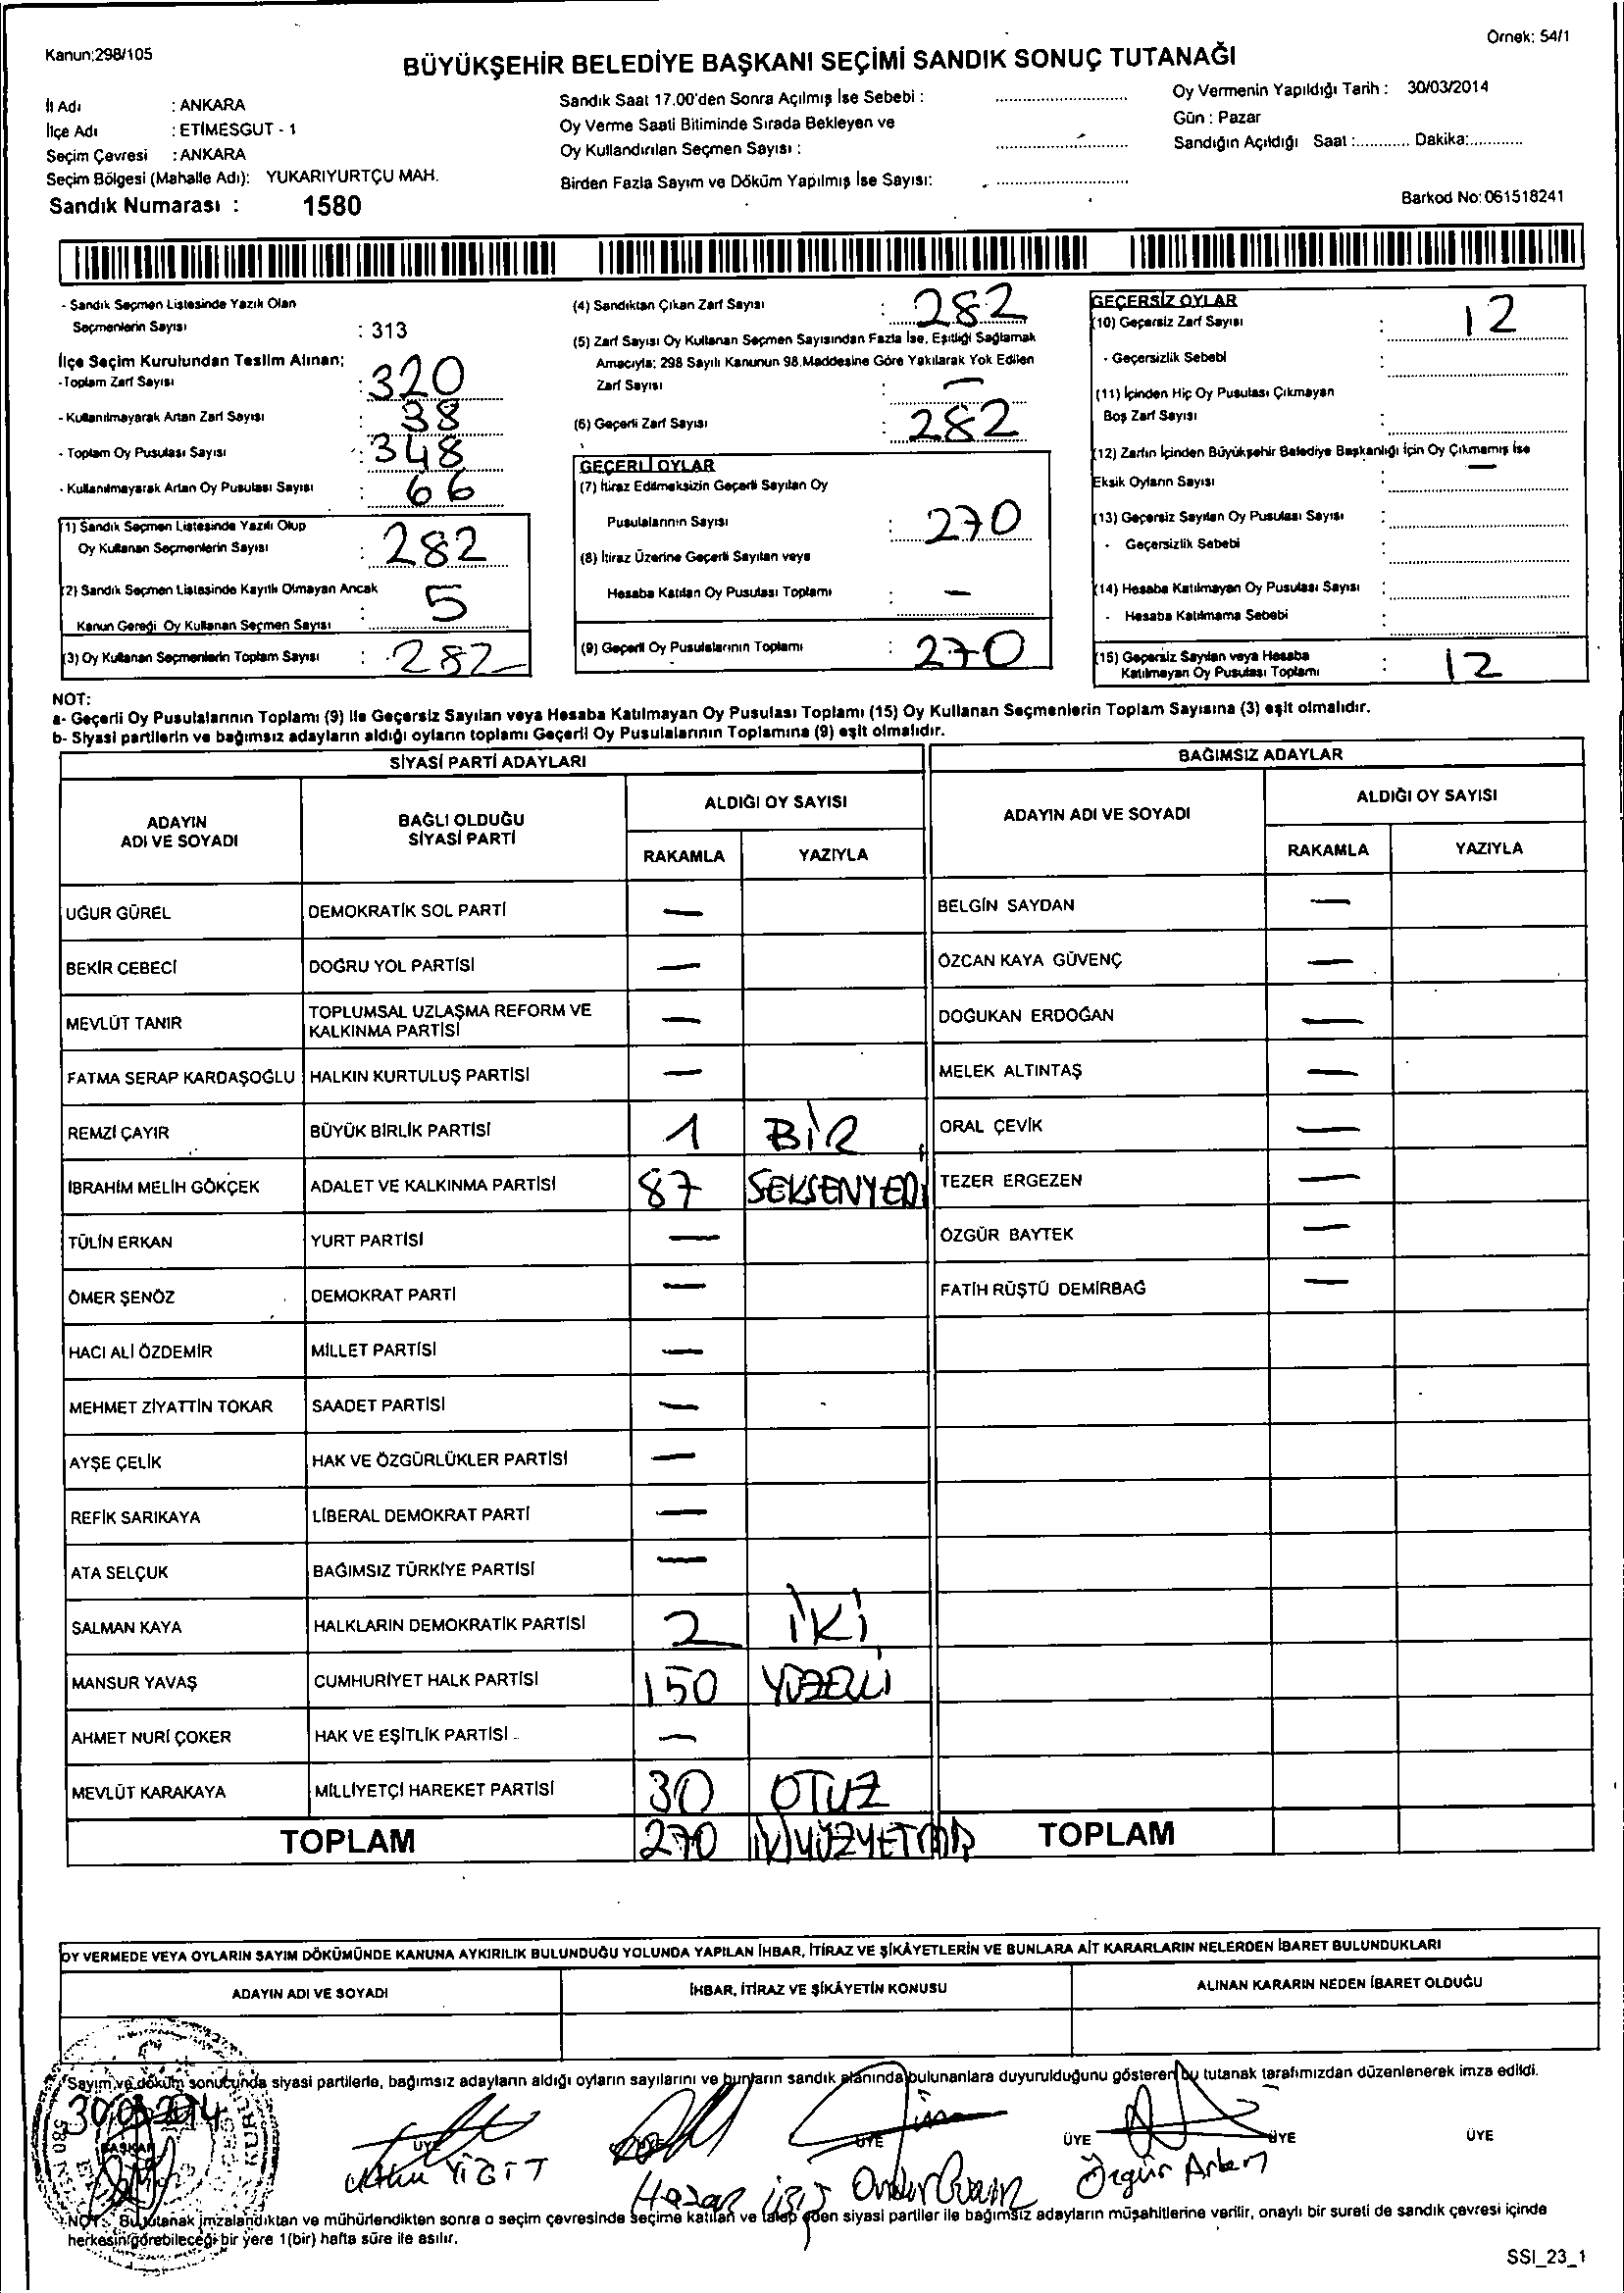 Kanun:298/105
Örnek: 54/1
BÜYÜKŞEHİR BELEDİYE BAŞKANI SEÇİMİ SANDIK SONUÇ TUTANAĞI
İl Adı : ANKARA
İlçe Adı : ETİMESGUT - 1
Seçim Çevresi : ANKARA
Seçim Bölgesi (Mahalle Adı): YUKARIYURTÇU MAH.
Sandık Numarası : 1580
Sandık Saat 17.00'den Sonra Açılmış İse Sebebi :
Oy Verme Saati Bitiminde Sırada Bekleyen ve
Oy Kullandırılan Seçmen Sayısı :
Birden Fazla Sayım ve Döküm Yapılmış İse Sayısı:
Oy Vermenin Yapıldığı Tarih : 30/03/2014
Gün : Pazar
Sandığın Açıldığı Saat :............ Dakika:............
Barkod No:061518241
- Sandık Seçmen Listesinde Yazılı Olan
Seçmenlerin Sayısı : 313
İlçe Seçim Kurulundan Teslim Alınan;
-Toplam Zarf Sayısı : 320
- Kullanılmayarak Artan Zarf Sayısı : 38
- Toplam Oy Pusulası Sayısı : 348
- Kullanılmayarak Artan Oy Pusulası Sayısı : 66
(1) Sandık Seçmen Listesinde Yazılı Olup
Oy Kullanan Seçmenlerin Sayısı : 282
(2) Sandık Seçmen Listesinde Kayıtlı Olmayan Ancak
Kanun Gereği Oy Kullanan Seçmen Sayısı : 5
(3) Oy Kullanan Seçmenlerin Toplam Sayısı : 282
(4) Sandıktan Çıkan Zarf Sayısı : 282
(5) Zarf Sayısı Oy Kullanan Seçmen Sayısından Fazla İse, Eşitliği Sağlamak
Amacıyla; 298 Sayılı Kanunun 98.Maddesine Göre Yakılarak Yok Edilen
Zarf Sayısı : —
(6) Geçerli Zarf Sayısı : 282
GEÇERLİ OYLAR
(7) İtiraz Edilmeksizin Geçerli Sayılan Oy
Pusulalarının Sayısı : 270
(8) İtiraz Üzerine Geçerli Sayılan veya
Hesaba Katılan Oy Pusulası Toplamı : —
(9) Geçerli Oy Pusulalarının Toplamı : 270
GEÇERSİZ OYLAR
(10) Geçersiz Zarf Sayısı : 12
- Geçersizlik Sebebi :
(11) İçinden Hiç Oy Pusulası Çıkmayan
Boş Zarf Sayısı :
(12) Zarfın İçinden Büyükşehir Belediye Başkanlığı İçin Oy Çıkmamış İse
Eksik Oyların Sayısı : —
(13) Geçersiz Sayılan Oy Pusulası Sayısı :
- Geçersizlik Sebebi :
(14) Hesaba Katılmayan Oy Pusulası Sayısı :
- Hesaba Katılmama Sebebi :
(15) Geçersiz Sayılan veya Hesaba
Katılmayan Oy Pusulası Toplamı : 12
NOT:
a- Geçerli Oy Pusulalarının Toplamı (9) İle Geçersiz Sayılan veya Hesaba Katılmayan Oy Pusulası Toplamı (15) Oy Kullanan Seçmenlerin Toplam Sayısına (3) eşit olmalıdır.
b- Siyasi partilerin ve bağımsız adayların aldığı oyların toplamı Geçerli Oy Pusulalarının Toplamına (9) eşit olmalıdır.
SİYASİ PARTİ ADAYLARI
BAĞIMSIZ ADAYLAR
ADAYIN
ADI VE SOYADI
BAĞLI OLDUĞU
SİYASİ PARTİ
ALDIĞI OY SAYISI
RAKAMLA YAZIYLA
ADAYIN ADI VE SOYADI
ALDIĞI OY SAYISI
RAKAMLA YAZIYLA
UĞUR GÜREL DEMOKRATİK SOL PARTİ — BELGİN SAYDAN —
BEKİR CEBECİ DOĞRU YOL PARTİSİ — ÖZCAN KAYA GÜVENÇ —
MEVLÜT TANIR TOPLUMSAL UZLAŞMA REFORM VE
KALKINMA PARTİSİ — DOĞUKAN ERDOĞAN —
FATMA SERAP KARDAŞOĞLU HALKIN KURTULUŞ PARTİSİ — MELEK ALTINTAŞ —
REMZİ ÇAYIR BÜYÜK BİRLİK PARTİSİ 1 BİR ORAL ÇEVİK —
İBRAHİM MELİH GÖKÇEK ADALET VE KALKINMA PARTİSİ 87 SEKSENYEDİ TEZER ERGEZEN —
TÜLİN ERKAN YURT PARTİSİ — ÖZGÜR BAYTEK —
ÖMER ŞENÖZ DEMOKRAT PARTİ — FATİH RÜŞTÜ DEMİRBAĞ —
HACI ALİ ÖZDEMİR MİLLET PARTİSİ —
MEHMET ZİYATTİN TOKAR SAADET PARTİSİ —
AYŞE ÇELİK HAK VE ÖZGÜRLÜKLER PARTİSİ —
REFİK SARIKAYA LİBERAL DEMOKRAT PARTİ —
ATA SELÇUK BAĞIMSIZ TÜRKİYE PARTİSİ —
SALMAN KAYA HALKLARIN DEMOKRATİK PARTİSİ 2 İKİ
MANSUR YAVAŞ CUMHURİYET HALK PARTİSİ 150 YÜZELLİ
AHMET NURİ ÇOKER HAK VE EŞİTLİK PARTİSİ —
MEVLÜT KARAKAYA MİLLİYETÇİ HAREKET PARTİSİ 30 OTUZ
TOPLAM 270 İKİYÜZYETMİŞ TOPLAM
OY VERMEDE VEYA OYLARIN SAYIM DÖKÜMÜNDE KANUNA AYKIRILIK BULUNDUĞU YOLUNDA YAPILAN İHBAR, İTİRAZ VE ŞİKÂYETLERİN VE BUNLARA AİT KARARLARIN NELERDEN İBARET BULUNDUKLARI
ADAYIN ADI VE SOYADI İHBAR, İTİRAZ VE ŞİKÂYETİN KONUSU ALINAN KARARIN NEDEN İBARET OLDUĞU
Sayım ve döküm sonucunda siyasi partilerle, bağımsız adayların aldığı oyların sayılarını ve bunların sandık alanında bulunanlara duyurulduğunu gösteren bu tutanak tarafımızdan düzenlenerek imza edildi.
30.03.2014
BAŞKAN ÜYE ÜYE ÜYE ÜYE ÜYE ÜYE
YİĞİT Hazar Özgür
NOT : Bu tutanak imzalandıktan ve mühürlendikten sonra o seçim çevresinde seçime katılan ve talep eden siyasi partiler ile bağımsız adayların müşahitlerine verilir, onaylı bir sureti de sandık çevresi içinde
herkesin görebileceği bir yere 1(bir) hafta süre ile asılır.
SSI_23_1